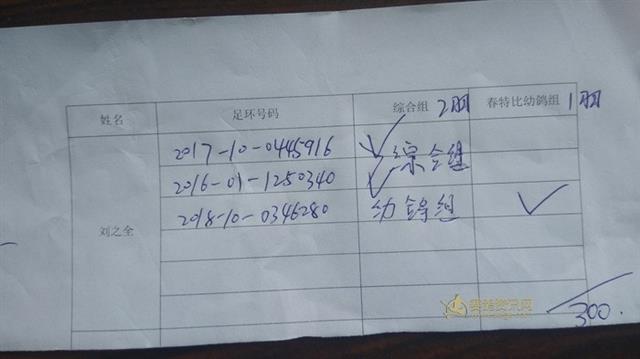 姓名 足环号码 综合组 2羽 春特比幼鸽组 1羽
2017-10-0445916 ✓ 综合组
2016-01-1250340 ✓
2018-10-0346280 幼鸽组 ✓
刘之全
300.